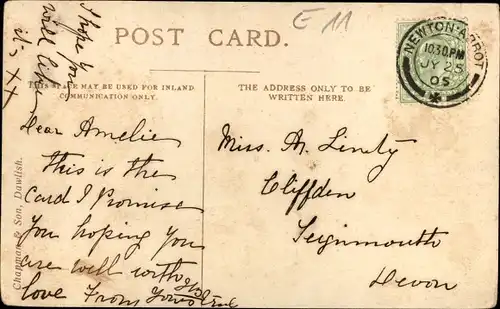 I hope you
will like
it, xx
E 11
POST CARD.
NEWTON-ABBOT
10.30 PM
JY 25
05
THIS SPACE MAY BE USED FOR INLAND
COMMUNICATION ONLY.
THE ADDRESS ONLY TO BE
WRITTEN HERE.
Dear Amelie
this is the
Card I Promise
you hoping you
are well with
love From
Miss. A.
Cliffden
Teignmouth
Devon
Chapman & Son, Dawlish.